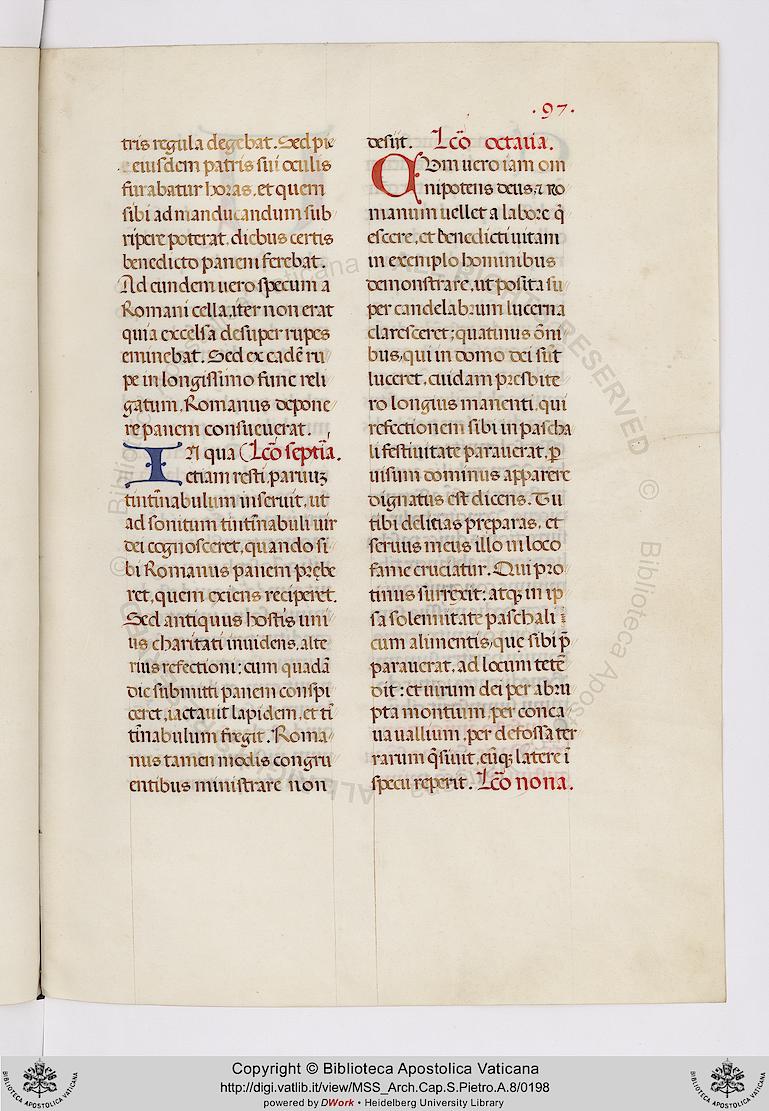 .97.
tris regula degebat. Sed pie
eiusdem patris sui oculis
furabatur horas, et quem
sibi ad manducandum sub
ripere poterat, diebus certis
benedicto panem ferebat.
Ad eundem uero specum a
Romani cella, iter non erat
quia excelsa desuper rupes
eminebat. Sed ex eadē ru
pe in longissimo fune reli
gatum, Romanus depone
re panem consueuerat.
IN qua Lco septīa.
etiam resti, paruuȝ
tintīnabulum inseruit, ut
ad sonitum tintīnabuli uir
dei cognosceret, quando si
bi Romanus panem prębe
ret, quem exiens reciperet.
Sed antiquus hostis uni
us charitati inuidens, alte
rius refectioni; cum quadā
die submitti panem conspi
ceret, iactauit lapidem, et tī
tīnabulum fregit. Roma
nus tamen modis congru
entibus ministrare non
desijt. Lco octaua.
CVm uero iam om
nipotens deus, ⁊ Ro
manum uellet a labore q̄
escere, et Benedicti uitam
in exemplo hominibus
demonstrare, ut posita su
per candelabrum lucerna
claresceret; quatinus ōni
bus, qui in domo dei sūt
luceret, cuidam presbite
ro longius manenti, qui
refectionem sibi in pascha
li festiuitate parauerat, ꝑ
uisum dominus apparere
dignatus est dicens. Tu
tibi delitias preparas, et
seruus meus illo in loco
fame cruciatur. Qui pro
tinus surrexit: atqꝫ in ip
sa solemnitate paschali
cum alimentis, que sibi p̄
parauerat, ad locum tetē
dit: et uirum dei per abru
pta montium, per conca
ua uallium, per defossa ter
rarum q̄siuit, eūqꝫ latere ī
specu reperit. Lco nona.
Copyright © Biblioteca Apostolica Vaticana
http://digi.vatlib.it/view/MSS_Arch.Cap.S.Pietro.A.8/0198
powered by DWork • Heidelberg University Library